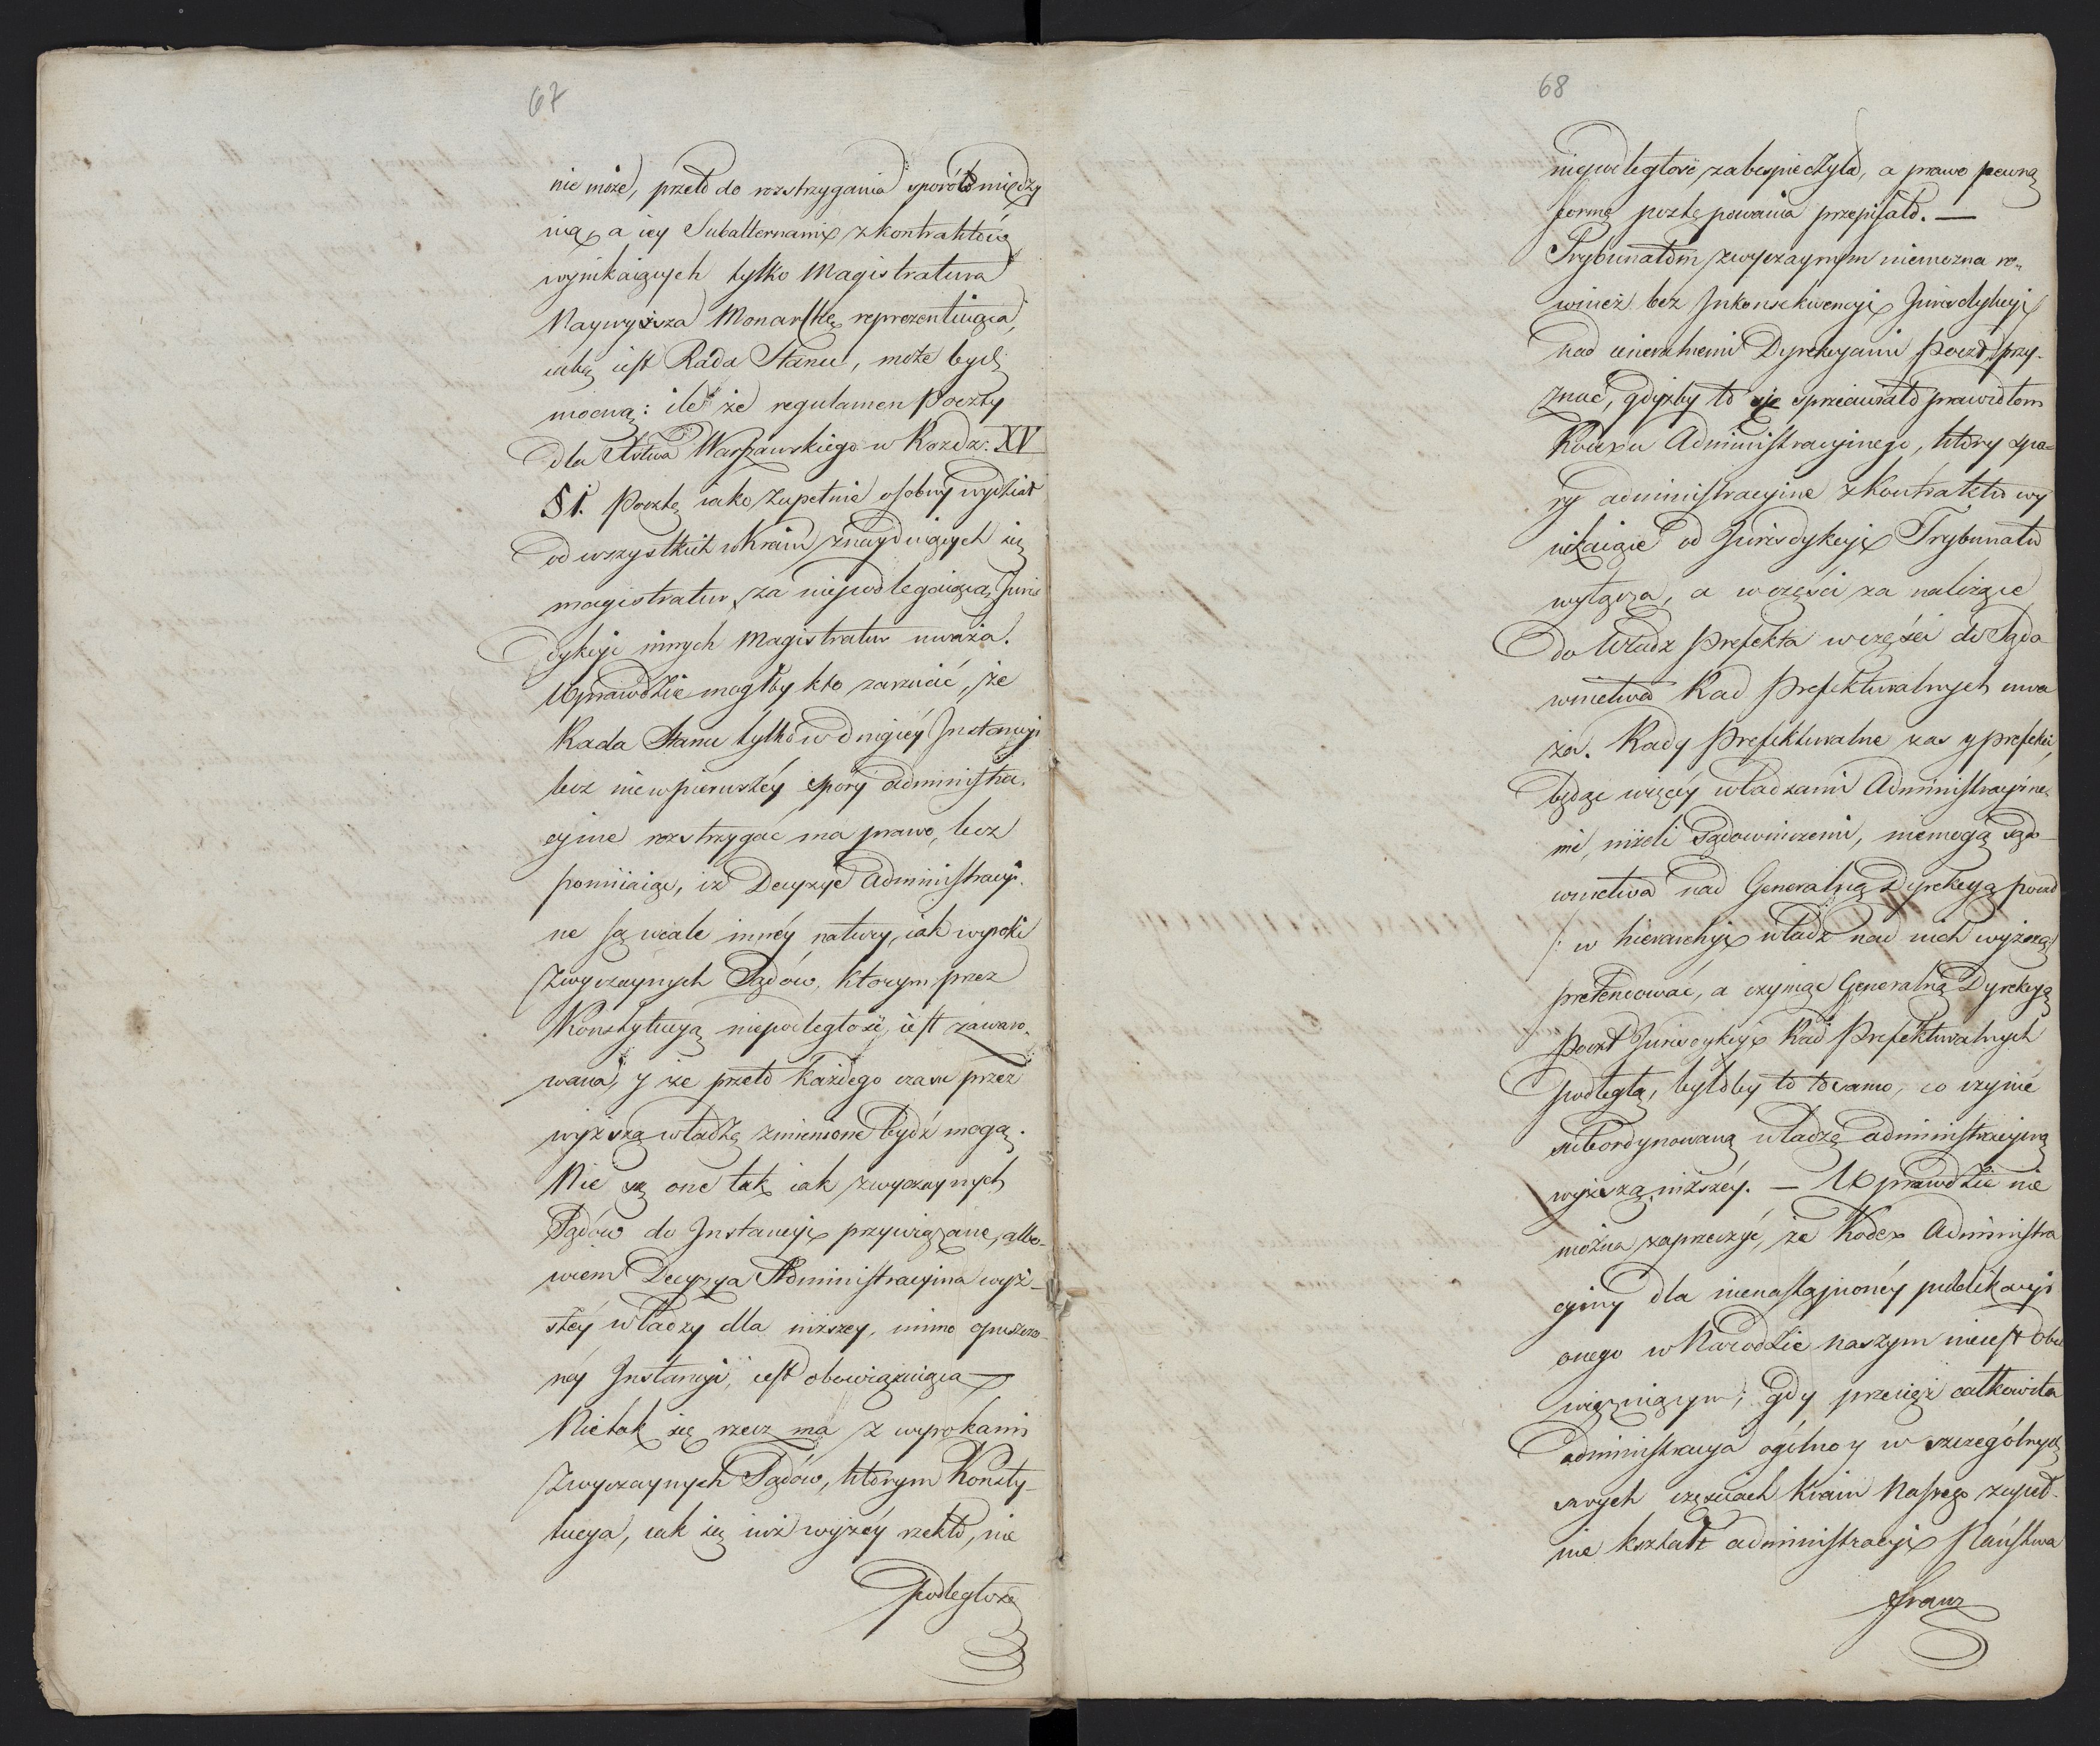 67
nie może, przeto do rozstrzygania sporów między
nią, a iey Subalternami z kontraktów
wynikaiących tylko Magistratura
Naywyższa Monarchę reprezentuiąca,
iaką iest Rada Stanu, może bydź
mocną: ile że regulamen Poczty
dla Xstwa Warszawskiego w Rozdz: XV
§ 1. Pocztę iako zupełnie osobny wydział
od wszystkich w Kraiu znayduiących się
magistratur, za niepodlegaiącą Juris
dykcyi innych Magistratur uważa.
Wprawdzie mogłby kto zarzucić, że
Rada Stanu tylko w drugiéy Instancyi
lecz nie w pierwszéy spory administra-
cyine rozstrzygać ma prawo, lecz
pomiiaiąc, iż Decyzye Administracyi-
ne są wcale innéy natury, iak wyroki
zwyczaynych Sądów, ktorym przez
Konstytucyą niepodległość iest zawaro-
wana, y że przeto każdego czasu przez
wyższą władzę zmienione bydź mogą.
Nie są one tak iak zwyczaynych
Sądów do Instancyi przywiązane, albo-
wiem Decyzya Administracyina wyż-
széy władzy dla niższey, mimo opuszczo-
néy Instancyi, iest obowiązuiąca
Nie tak się rzecz ma z wyrokami
zwyczaynych Sądów, którym Konsty-
tucya, iak się iuż wyżéy rzekło, nie
podległość
68
niepodległość zabespieczyła, a prawo pewną
formę postępowania przepisało. —
Trybunałom zwyczaynym niemożna ro-
wnież bez Inkonsekwencyi Jurisdykcyi
nad Generalnemi Dyrekcyami Poczt przy-
znać, gdyżby to się sprzeciwiało prawidłom
Kodexu Administracyinego, który spo-
ry administracyine z Kontraktu wy
nikaiące od Jurisdykcyi Trybunału
wyłącza, a w części za należące
do Władz Prefekta w części do Sądo-
wnictwa Rad Prefekturalnych uwa
ża. Rady Prefekturalne zas y prefekci,
będąc więcéy władzami Administracyine-
mi, niżeli Sądowniczemi, niemogą Sądo-
wnictwa nad Generalną Dyrekcyą poczt
/: w hierarchyi władz nad nich wyższą
pretendować, a czyniąc Generalną Dyrekcyą
Poczt Jurisdykcyi Rad Prefekturalnych
podległą, byłoby to to samo, co czynić
subordynowaną władzę administracyiną
wyższą niższéy. — Wprawdzie nie
można zaprzeczyć, że Kodex Administra
cyiny dla nienastąpionéy publikacyi
onego w Narodzie naszym nieiest obo
wiązuiącym; gdy przecięż całkowita
administracya ogólno y w szczególnych
swych częściach Kraiu Naszego zupeł-
nie kształt administracyi Państwa
Franz